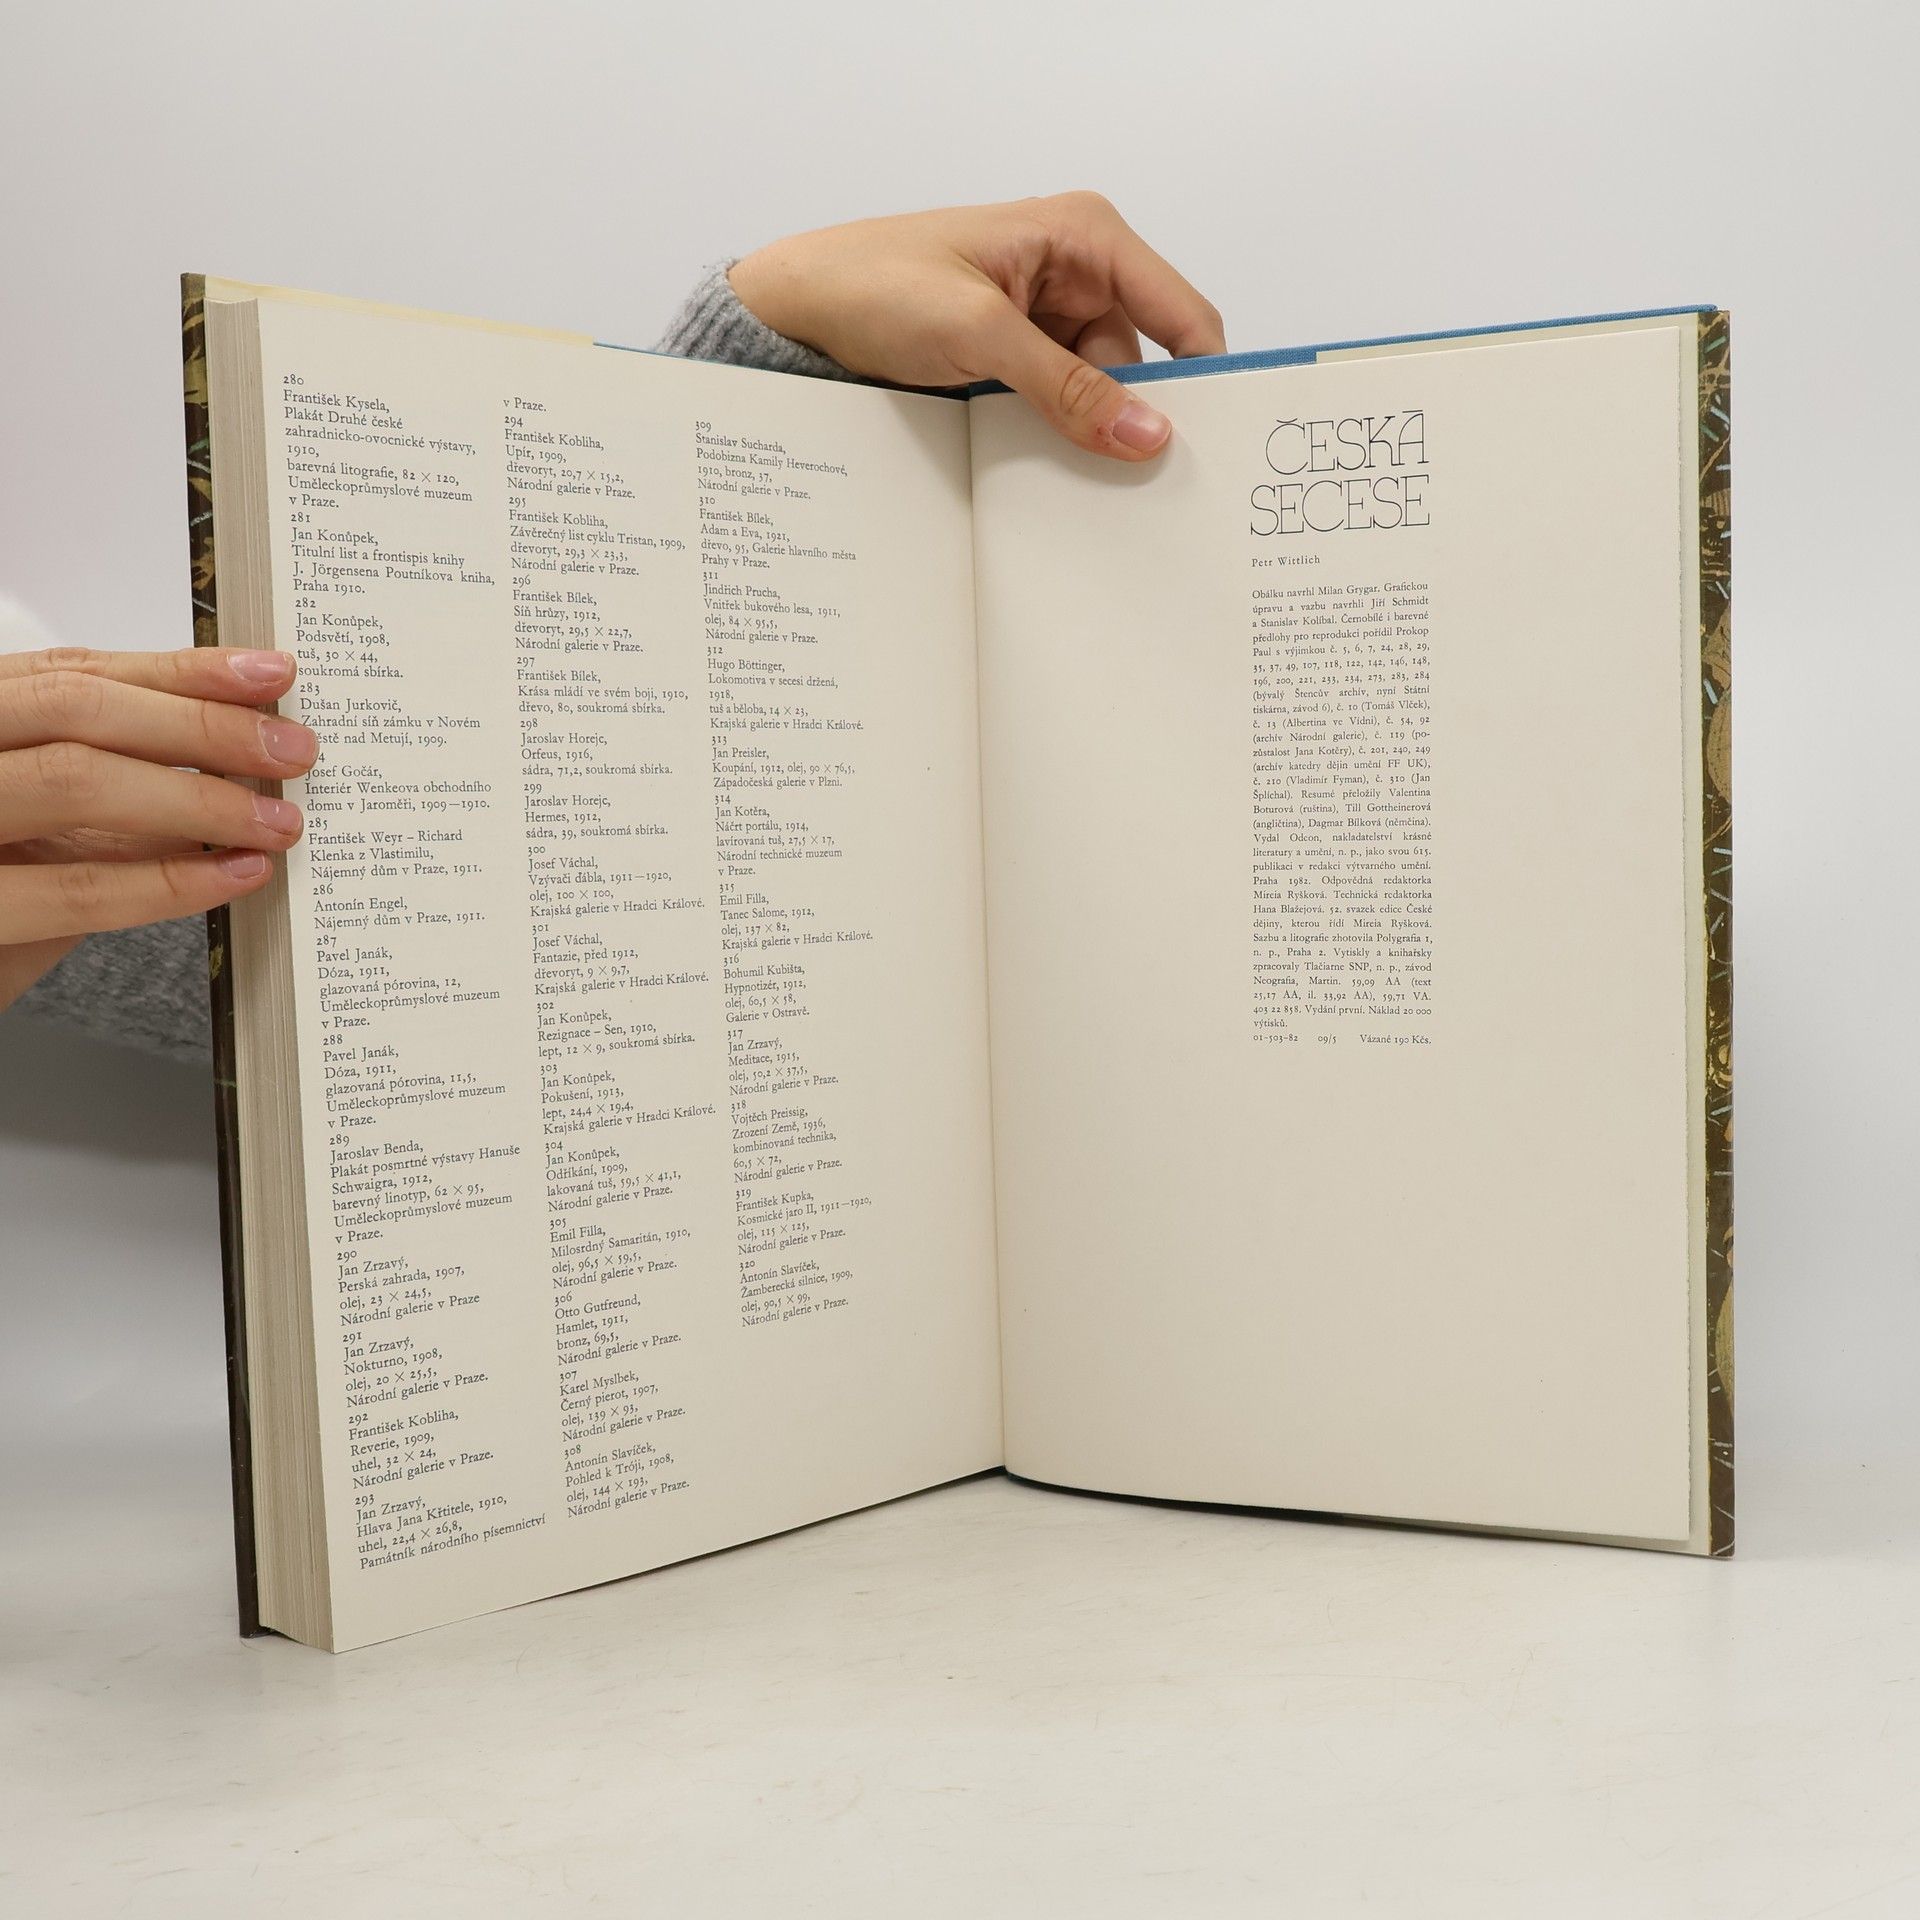 280
František Kysela,
Plakát Druhé české
zahradnicko-ovocnické výstavy,
1910,
barevná litografie, 82 × 120,
Uměleckoprůmyslové muzeum
v Praze.
281
Jan Konůpek,
Titulní list a frontispis knihy
J. Jörgensena Poutníkova kniha,
Praha 1910.
282
Jan Konůpek,
Podsvětí, 1908,
tuš, 30 × 44,
soukromá sbírka.
283
Dušan Jurkovič,
Zahradní síň zámku v Novém
ěstě nad Metují, 1909.
4
Josef Gočár,
Interiér Wenkeova obchodního
domu v Jaroměři, 1909—1910.
285
František Weyr – Richard
Klenka z Vlastimilu,
Nájemný dům v Praze, 1911.
286
Antonín Engel,
Nájemný dům v Praze, 1911.
287
Pavel Janák,
Dóza, 1911,
glazovaná pórovina, 12,
Uměleckoprůmyslové muzeum
v Praze.
288
Pavel Janák,
Dóza, 1911,
glazovaná pórovina, 11,5,
Uměleckoprůmyslové muzeum
v Praze.
289
Jaroslav Benda,
Plakát posmrtné výstavy Hanuše
Schwaigra, 1912,
barevný linotyp, 62 × 95,
Uměleckoprůmyslové muzeum
v Praze.
290
Jan Zrzavý,
Perská zahrada, 1907,
olej, 23 × 24,5,
Národní galerie v Praze
291
Jan Zrzavý,
Nokturno, 1908,
olej, 20 × 25,5,
Národní galerie v Praze.
292
František Kobliha,
Reverie, 1909,
uhel, 32 × 24,
Národní galerie v Praze.
293
Jan Zrzavý,
Hlava Jana Křtitele, 1910,
uhel, 22,4 × 26,8,
Památník národního písemnictví
v Praze.
294
František Kobliha,
Upír, 1909,
dřevoryt, 20,7 × 15,2,
Národní galerie v Praze.
295
František Kobliha,
Závěrečný list cyklu Tristan, 1909,
dřevoryt, 29,3 × 23,3,
Národní galerie v Praze.
296
František Bílek,
Síň hrůzy, 1912,
dřevoryt, 29,5 × 22,7,
Národní galerie v Praze.
297
František Bílek,
Krása mládí ve svém boji, 1910,
dřevo, 80, soukromá sbírka.
298
Jaroslav Horejc,
Orfeus, 1916,
sádra, 71,2, soukromá sbírka.
299
Jaroslav Horejc,
Hermes, 1912,
sádra, 39, soukromá sbírka.
300
Josef Váchal,
Vzývači ďábla, 1911—1920,
olej, 100 × 100,
Krajská galerie v Hradci Králové.
301
Josef Váchal,
Fantazie, před 1912,
dřevoryt, 9 × 9,7,
Krajská galerie v Hradci Králové.
302
Jan Konůpek,
Rezignace – Sen, 1910,
lept, 12 × 9, soukromá sbírka.
303
Jan Konůpek,
Pokušení, 1913,
lept, 24,4 × 19,4,
Krajská galerie v Hradci Králové.
304
Jan Konůpek,
Odříkání, 1909,
lakovaná tuš, 59,5 × 41,1,
Národní galerie v Praze.
305
Emil Filla,
Milosrdný Samaritán, 1910,
olej, 96,5 × 59,5,
Národní galerie v Praze.
306
Otto Gutfreund,
Hamlet, 1911,
bronz, 69,5,
Národní galerie v Praze.
307
Karel Myslbek,
Černý pierot, 1907,
olej, 139 × 93,
Národní galerie v Praze.
308
Antonín Slavíček,
Pohled k Tróji, 1908,
olej, 144 × 193,
Národní galerie v Praze.
309
Stanislav Sucharda,
Podobizna Kamily Heverochové,
1910, bronz, 37,
Národní galerie v Praze.
310
František Bílek,
Adam a Eva, 1921,
dřevo, 95, Galerie hlavního města
Prahy v Praze.
311
Jindřich Prucha,
Vnitřek bukového lesa, 1911,
olej, 84 × 95,5,
Národní galerie v Praze.
312
Hugo Böttinger,
Lokomotiva v secesi držená,
1918,
tuš a běloba, 14 × 23,
Krajská galerie v Hradci Králové.
313
Jan Preisler,
Koupání, 1912, olej, 90 × 76,5,
Západočeská galerie v Plzni.
314
Jan Kotěra,
Náčrt portálu, 1914,
lavírovaná tuš, 27,5 × 17,
Národní technické muzeum
v Praze.
315
Emil Filla,
Tanec Salome, 1912,
olej, 137 × 82,
Krajská galerie v Hradci Králové.
316
Bohumil Kubišta,
Hypnotizér, 1912,
olej, 60,5 × 58,
Galerie v Ostravě.
317
Jan Zrzavý,
Meditace, 1915,
olej, 50,2 × 37,5,
Národní galerie v Praze.
318
Vojtěch Preissig,
Zrození Země, 1936,
kombinovaná technika,
60,5 × 72,
Národní galerie v Praze.
319
František Kupka,
Kosmické jaro II, 1911—1920,
olej, 115 × 125,
Národní galerie v Praze.
320
Antonín Slavíček,
Žamberecká silnice, 1909,
olej, 90,5 × 99,
Národní galerie v Praze.
ČESKÁ
SECESE
Petr Wittlich
Obálku navrhl Milan Grygar. Grafickou
úpravu a vazbu navrhli Jiří Schmidt
a Stanislav Kolíbal. Černobílé i barevné
předlohy pro reprodukci pořídil Prokop
Paul s výjimkou č. 5, 6, 7, 24, 28, 29,
35, 37, 49, 107, 118, 122, 142, 146, 148,
196, 200, 221, 233, 234, 273, 283, 284
(bývalý Štencův archív, nyní Státní
tiskárna, závod 6), č. 10 (Tomáš Vlček),
č. 13 (Albertina ve Vídni), č. 54, 92
(archív Národní galerie), č. 119 (po-
zůstalost Jana Kotěry), č. 201, 240, 249
(archív katedry dějin umění FF UK),
č. 210 (Vladimír Fyman), č. 310 (Jan
Šplíchal). Resumé přeložily Valentina
Boturová (ruština), Till Gottheinerová
(angličtina), Dagmar Bílková (němčina).
Vydal Odeon, nakladatelství krásné
literatury a umění, n. p., jako svou 615.
publikaci v redakci výtvarného umění.
Praha 1982. Odpovědná redaktorka
Mireia Ryšková. Technická redaktorka
Hana Blažejová. 52. svazek edice České
dějiny, kterou řídí Mireia Ryšková.
Sazbu a litografie zhotovila Polygrafia 1,
n. p., Praha 2. Vytiskly a knihařsky
zpracovaly Tlačiarne SNP, n. p., závod
Neografia, Martin. 59,09 AA (text
25,17 AA, il. 33,92 AA), 59,71 VA.
403 22 858. Vydání první. Náklad 20 000
výtisků.
01-503-82 09/5 Vázané 190 Kčs.